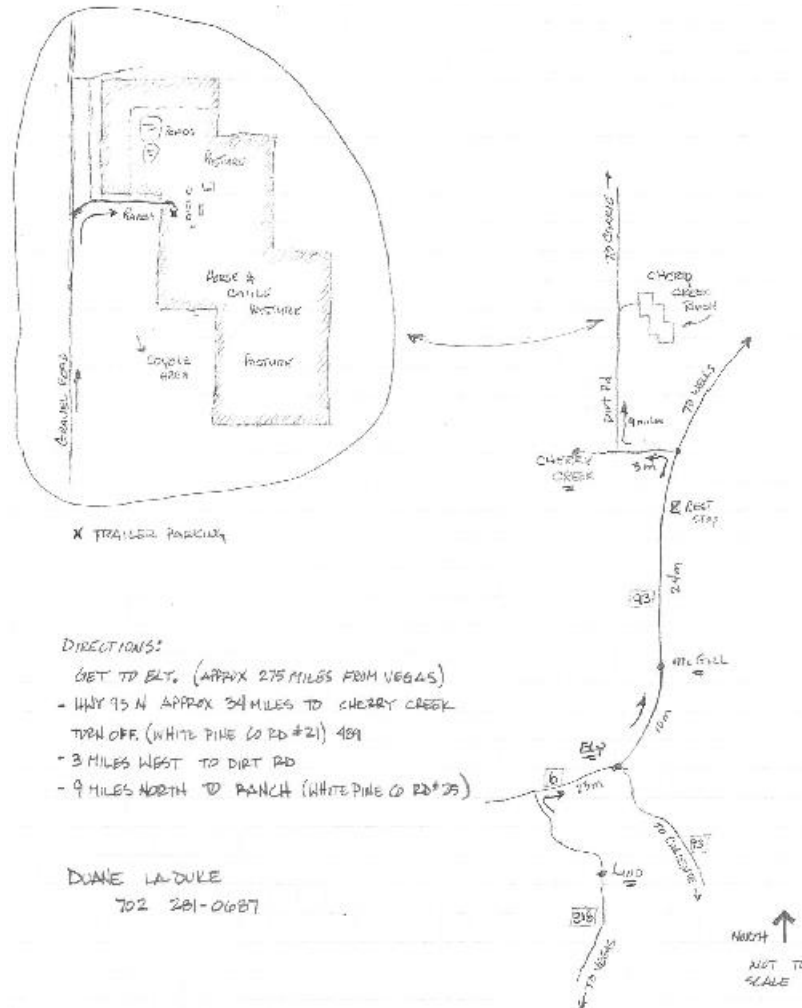 PONDS
PASTURE
RANCH
HORSE &
CATTLE
PASTURE
PASTURE
COYOTE
AREA
GRAVEL ROAD
X TRAILER PARKING
TO CURRIE
CHERRY
CREEK
RANCH
TO WELLS
DIRT RD
9 miles
CHERRY
CREEK
3m
REST
STOP
93
24m
McGILL
10m
ELY
6
23m
TO CALIENTE
93
LUND
318
TO VEGAS
NORTH
NOT TO
SCALE
DIRECTIONS:
GET TO ELY. (APPROX 275 MILES FROM VEGAS)
- HWY 93 N APPROX 34 MILES TO CHERRY CREEK
TURN OFF. (WHITE PINE CO RD #21) 489
- 3 MILES WEST TO DIRT RD
- 9 MILES NORTH TO RANCH (WHITE PINE CO RD #25)
DUANE LADUKE
702 281-0687